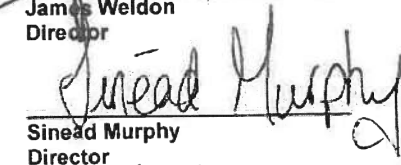 James Weldon
Director
Sinead Murphy
Sinead Murphy
Director